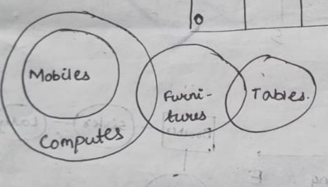 Mobiles
Computes
Furni-
tures
Tables.